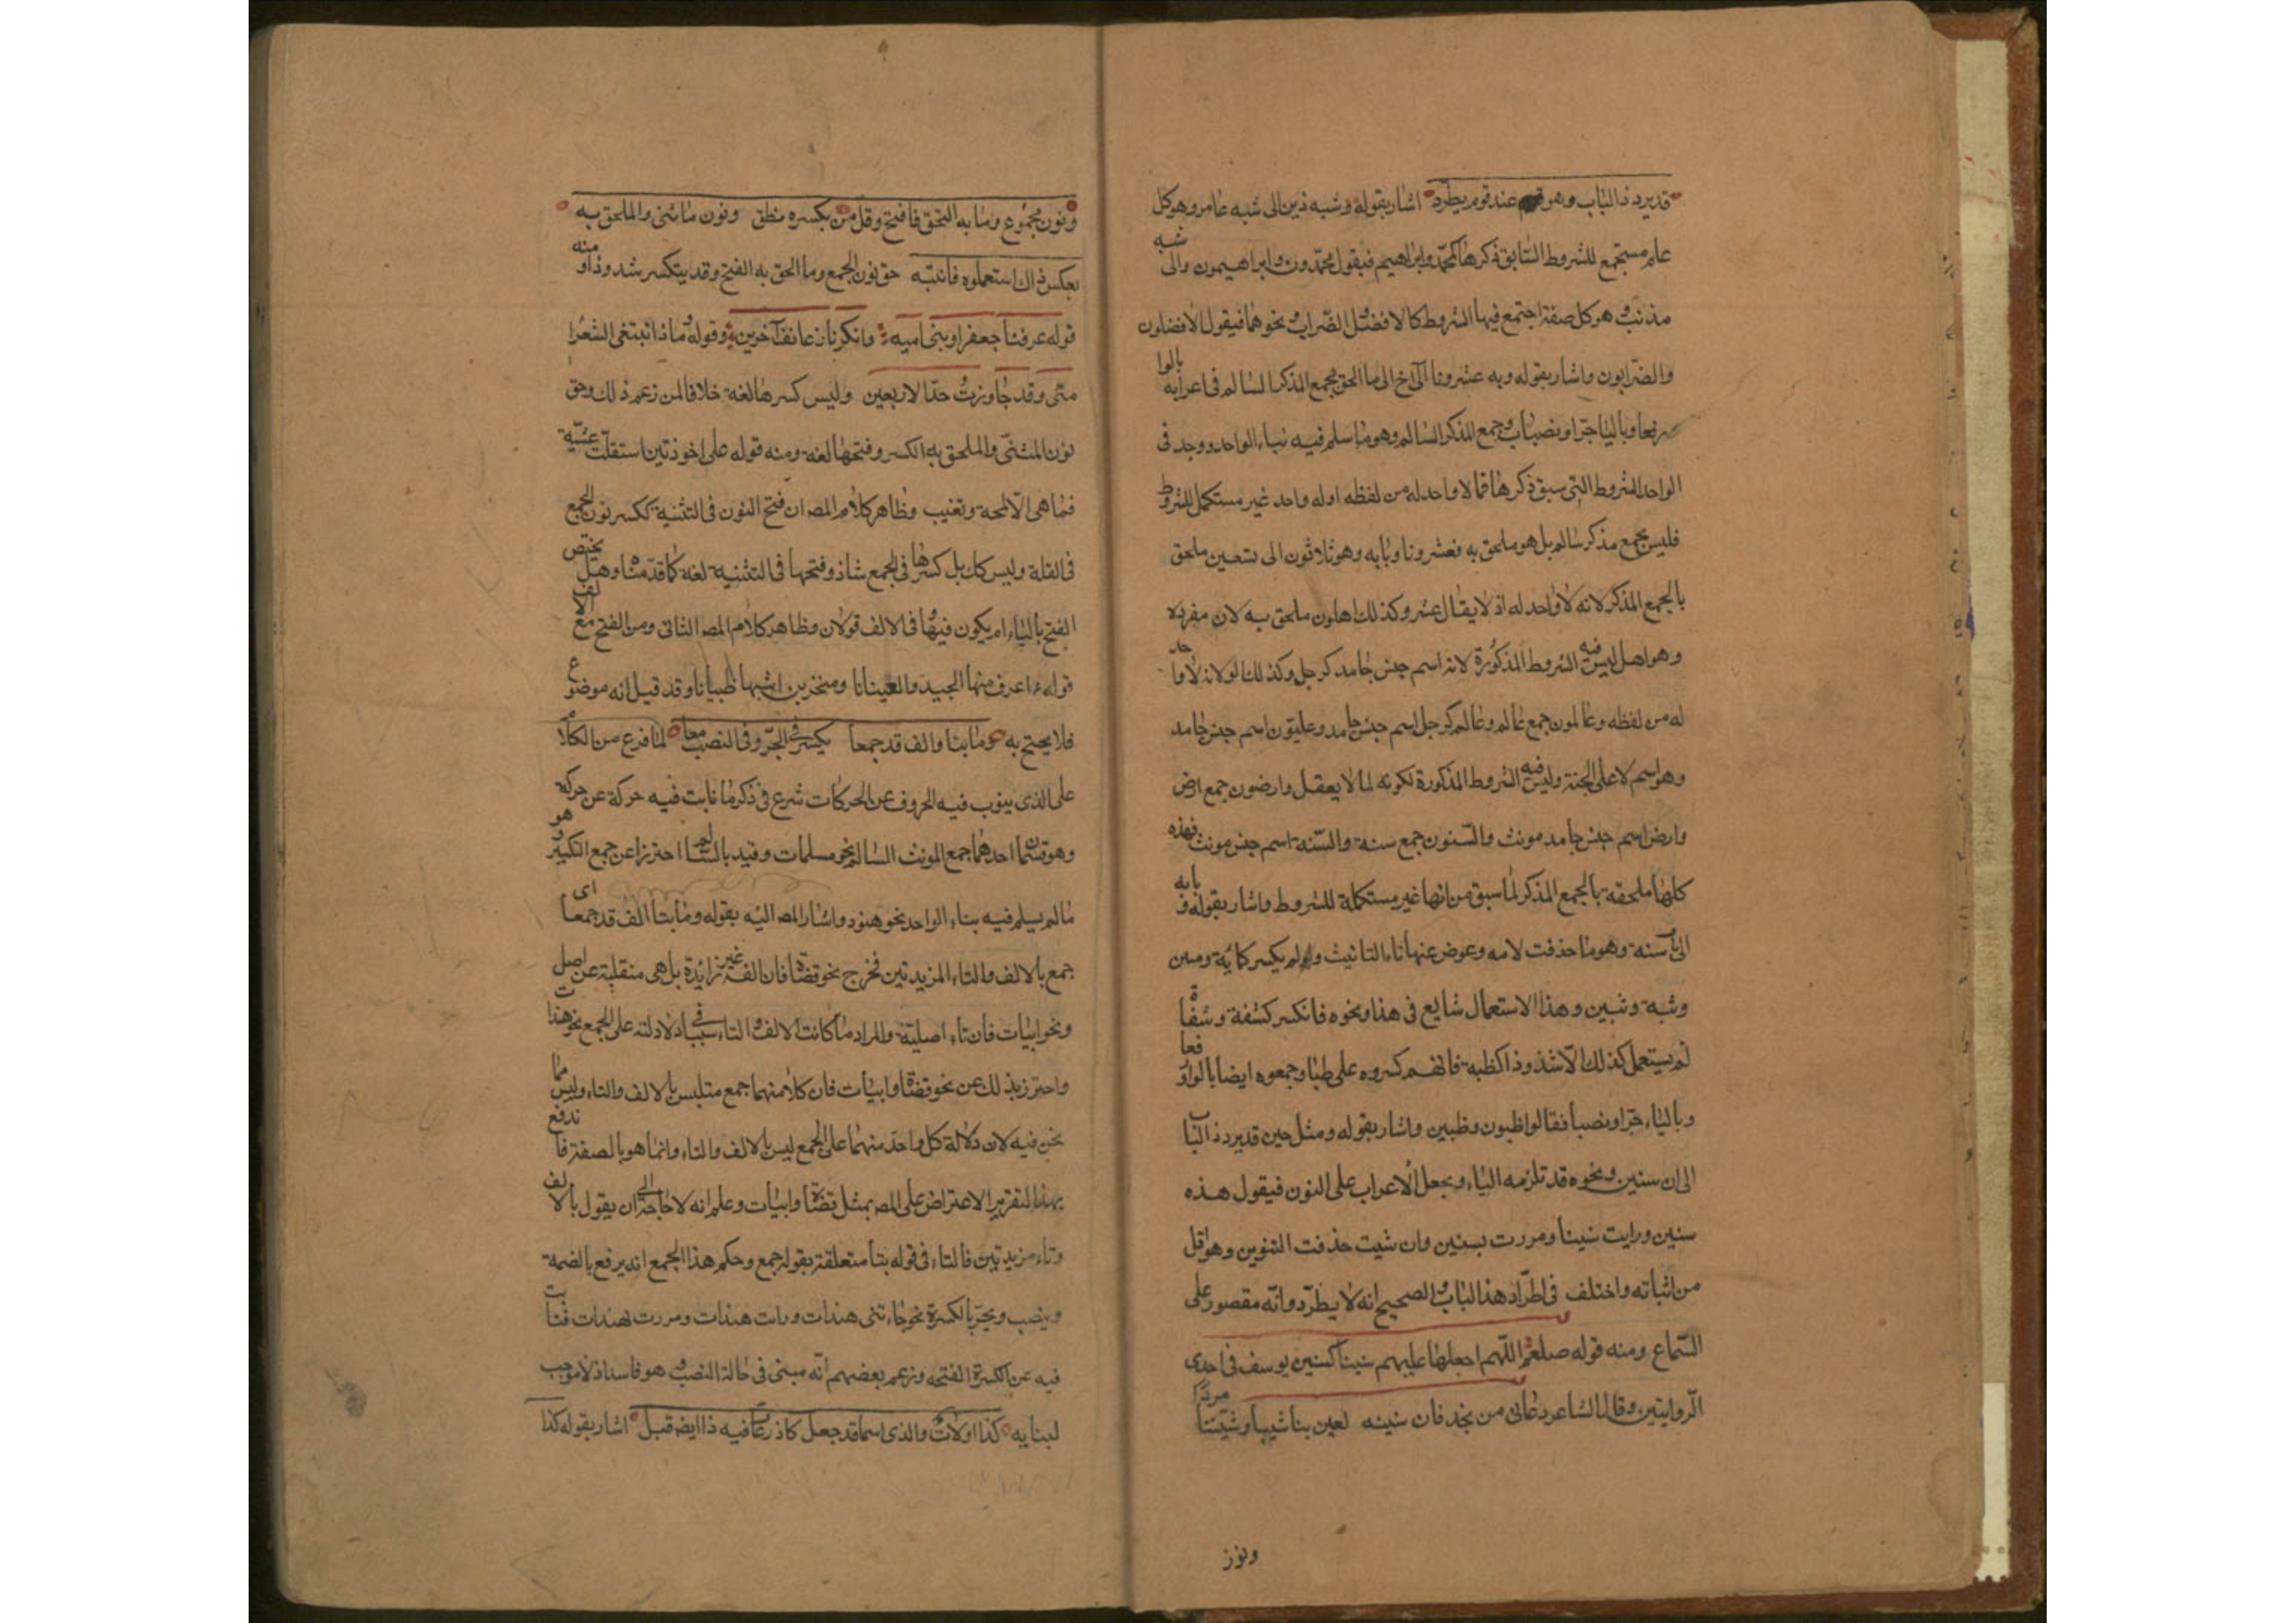 قد يرد ذا الباب وهو عند قوم يطرد اشار بقوله وشبه ذين الى شبه عامر وهو كل
علم مستجمع للشروط السابق ذكرها كمحمد وابراهيم فيقول محمدون وابراهيمون والى شبه
مذنب وهو كل صفة اجتمع فيها الشروط كالافضل والضراب ونحوهما فيقول الافضلون
والضرابون واشار بقوله وبه عشرونا الى اخ الى ما الحق بجمع المذكر السالم فى اعرابه بالوا
رفعا وباليا جرا ونصبا وجمع المذكر السالم وهو ما سلم فيه بناء الواحد ووجد فى
الواحد الشروط التى سبق ذكرها فما لا واحد له من لفظه او له واحد غير مستكمل للشروط
فليس بجمع مذكر سالم بل هو ملحق به فعشرونا وبابه وهو ثلاثون الى تسعين ملحق
بالجمع المذكر لانه لا واحد له اذ لا يقال عشر وكذلك اهلون ملحق به لان مفرده
وهو اهل ليس فيه الشروط المذكورة لانه اسم جنس جامد كرجل وكذلك اولو لانه لا واحد
له من لفظه وعالمون جمع عالم وعالم كرجل اسم جنس جامد وعليون اسم جنس جامد
وهو اسم لاعلى الجنة وليس فيه الشروط المذكورة لكونه لما لا يعقل وارضون جمع ارض
وارض اسم جنس جامد مونث والسنون جمع سنة والسنة اسم جنس مونث فهذه
كلها ملحقة بالجمع المذكر لما سبق من انها غير مستكملة للشروط واشار بقوله وبابه
الى باب سنة وهو ما حذفت لامه وعوض عنها تاء التانيث ولم يكسر كماية ومىين
وثبة وثبين وهذا الاستعمال شايع فى هذا ونحوه فان كسر كشفة وشفاة
لم يستعمل كذلك الا شذوذا كظبة فانهم كسروه على ظبا وجمعوه ايضا بالواو رفعا
وبالياء جرا ونصبا فقالوا ظبون وظبين واشار بقوله ومثل حين قد يرد ذا الباب
الى ان سنين ونحوه قد تلزمه الياء ويجعل الاعراب على النون فيقول هذه
سنين ورايت سنينا ومررت بسنين وان شيت حذفت التنوين وهو اقل
من اثباته واختلف فى اطراد هذا الباب والصحيح انه لا يطرد وانه مقصور على
السماع ومنه قوله صلعم اللهم اجعلها عليهم سنينا كسنين يوسف فى احدى
الروايتين وقال الشاعر دعانى من نجد فان سنينه لعبن بنا شيبا وشيبننا مردا
ونون
ونون مجموع وما به التحق فافتح وقل من بكسره نطق ونون ما ثنى والملحق به
بعكس ذاك استعملوه فانتبه حق نون الجمع وما الحق به الفتح وقد يتكسر شذوذا ومنه
قوله عرفنا جعفرا وبنى ابيه وانكرنا زعانف آخرين وقوله وماذا تبتغى الشعرا
منى وقد جاوزت حد الاربعين وليس كسرها لغة خلافا لمن زعم ذلك وحق
نون المثنى والملحق به الكسر وفتحها لغة ومنه قوله على احوذتين استقلت عشية
فما هى الا لمحة وتغيب وظاهر كلام المص ان فتح النون فى التثنية ككسر نون الجمع
فى القلة وليس كك بل كسرها فى الجمع شاذ وفتحها فى التثنية لغة كما قدمناه وهل يختص
الفتح بالياء ام يكون فيها وفى الالف قولان وظاهر كلام المص الثانى ومن الفتح مع الالف
قوله اعرف منها الجيد والعينانا ومنخرين اشبها ظبيانا وقد قيل انه موضوع
فلا يحتج به وما بتا والف قد جمعا يكسر فى الجر وفى النصب معا لما فرغ من الكلام
على الذى ينوب فيه الحروف عن الحركات شرع فى ذكر ما نابت فيه حركة عن حركة
وهو قسمان احدهما جمع المونث السالم نحو مسلمات وقيد بالسالم احترازا عن جمع التكسير وهو
ما لم يسلم فيه بناء الواحد نحو هنود واشار المص اليه بقوله وما بتا والف قد جمعا اى
جمع بالالف والتاء المزيدتين فخرج نحو قضاة فان الفه غير زايدة بل هى منقلبة عن اصل
ونحو ابيات فان تاءه اصلية والمراد ما كانت الالف والتاء سببا فى دلالته على الجمع نحو هندات
واحترز بذلك عن نحو قضاة وابيات فان كلا منهما جمع متلبس بالالف والتاء وليس مما
نحن فيه لان دلالة كل واحد منهما على الجمع ليس بالالف والتاء وانما هو بالصفة فاندفع
بهذا التقرير الاعتراض على المص بمثل قضاة وابيات وعلم انه لا حاجة الى ان يقول بالالف
وتاء مزيدتين فالتاء فى قوله بتا متعلقة بقوله جمع وحكم هذا الجمع انه يرفع بالضمة
وينصب ويجر بالكسرة نحو جاءتنى هندات ورايت هندات ومررت بهندات فنابت
فيه عن الكسرة الفتحه وزعم بعضهم انه مبنى فى حالة النصب وهو فاسد اذ لا موجب
لبنايه كذا اولات والذى اسما قد جعل كاذرعات فيه ذا ايضا قبل اشار بقوله كذا